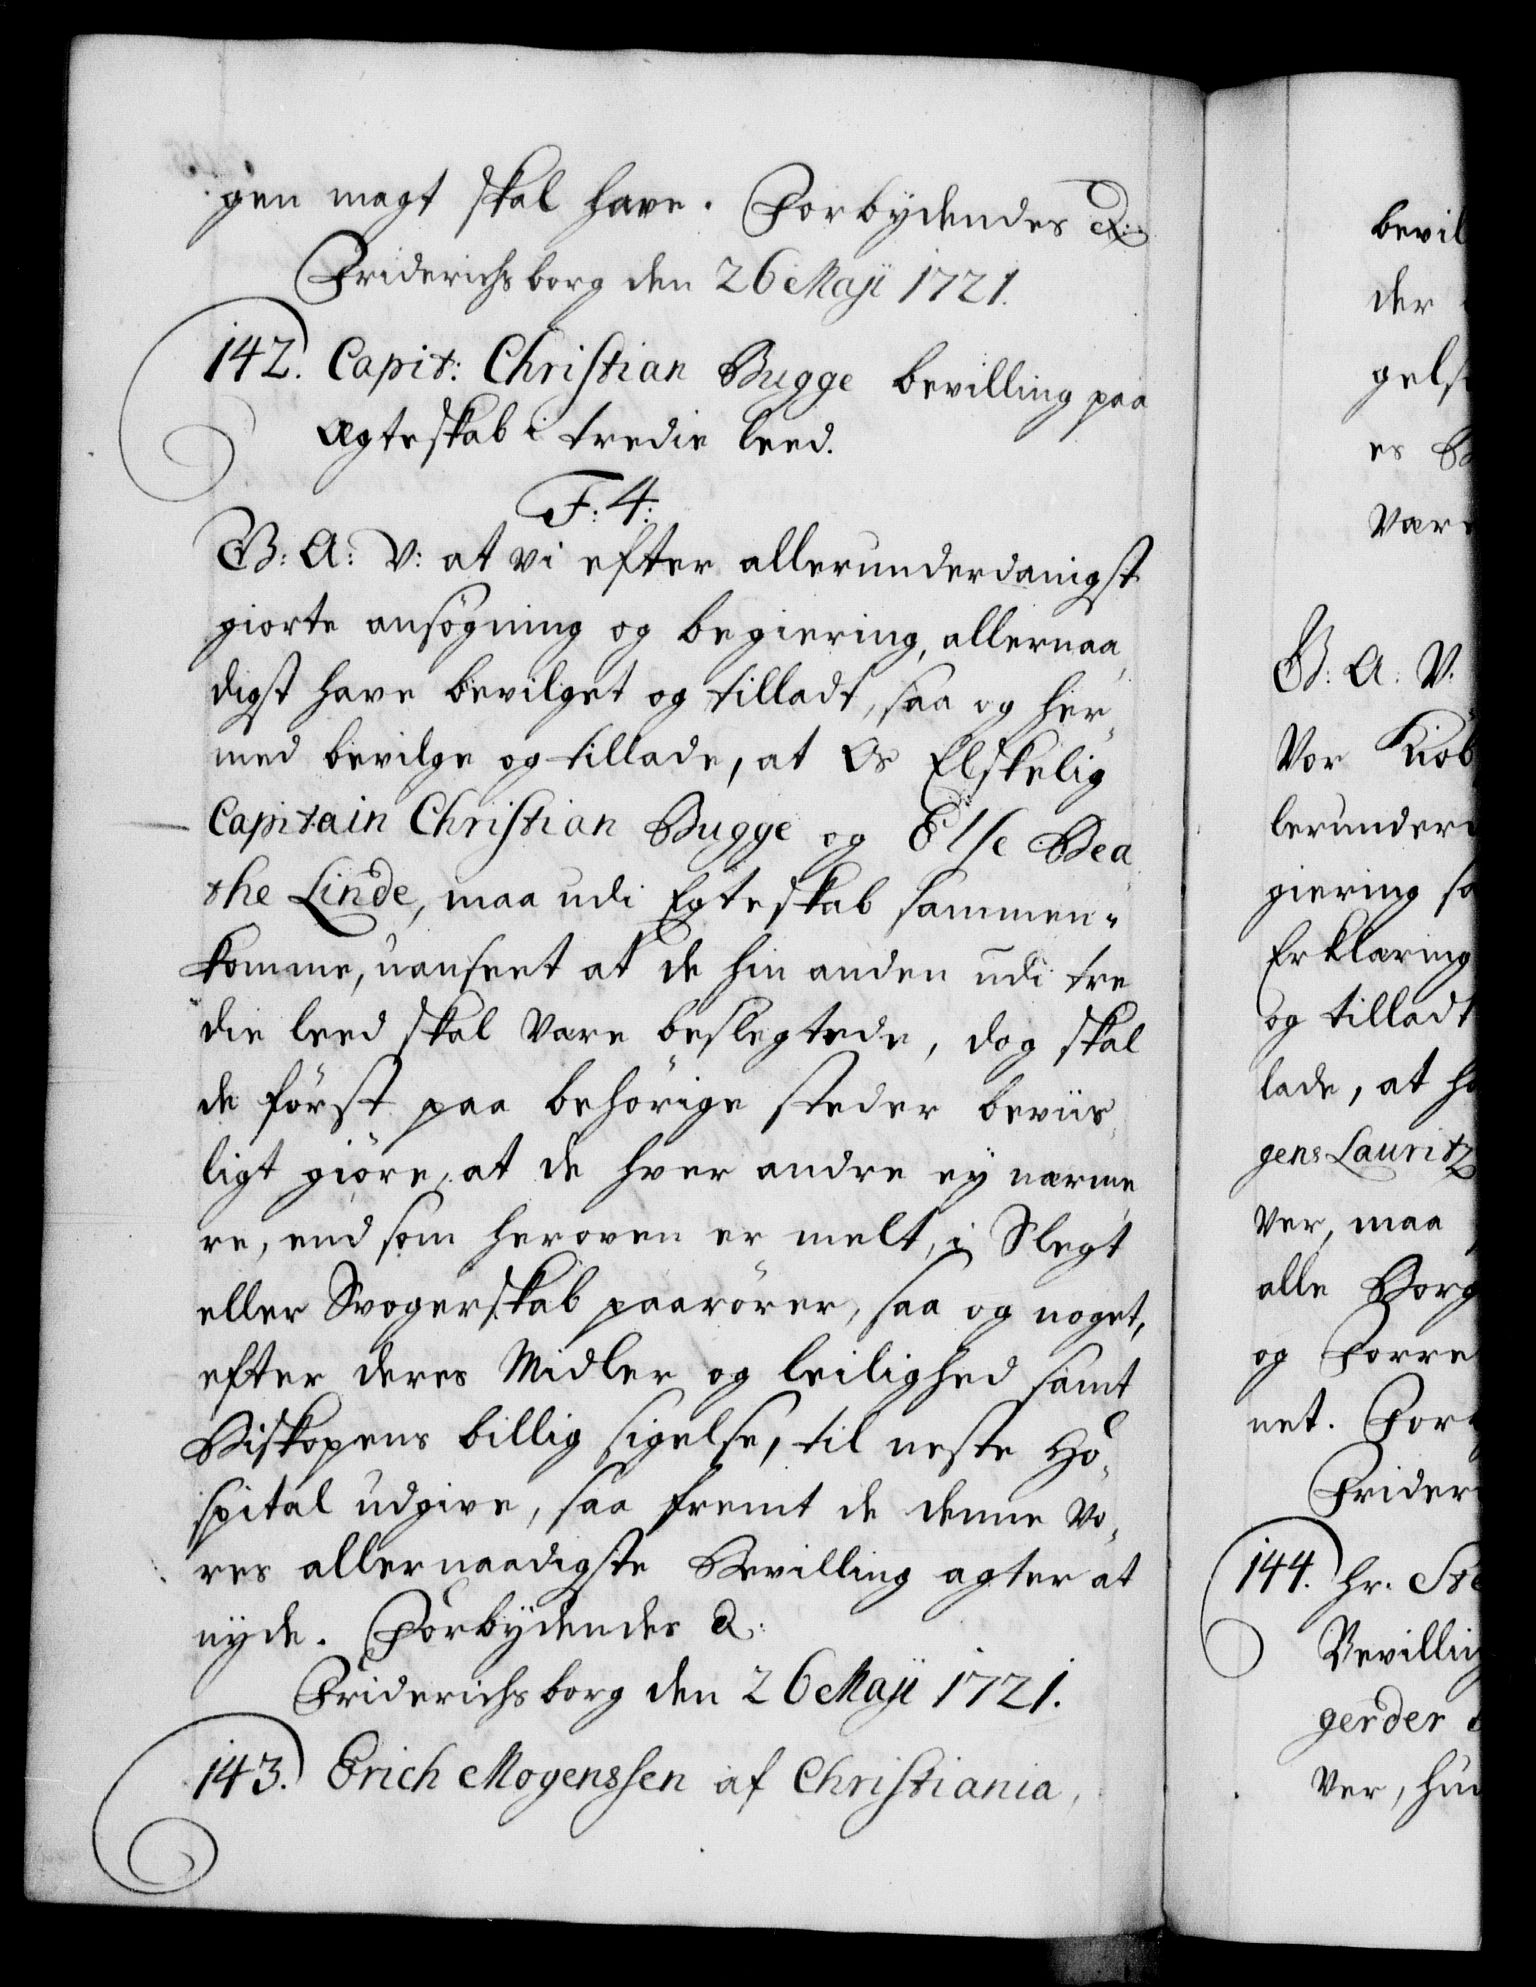 gen magt skal have. Forbydendes &:
Friderichsborg den 26 Maji 1721.
142. Capit: Christian Bugge bevilling paa
Ægteskab i tredie leed.
F: 4:
G: A: V: at vi efter allerunderdanigst
giorte ansögning og begiering, allernaa,,
digst have bevilget og tilladt, saa og her,,
med bevilge og tillade, at Os Elskelig
Capitain Christian Bugge og Else Bea
the Linde, maa udi Egteskab sammen-
komme, uanseet at de hin anden udi tre
die leed skal Være beslegtede, dog skal
de först paa behörige steder beviis,,
ligt giöre, at de hver andre ey nærme,,
re, end som heroven er melt, i Slegt
eller Svogerskab paarörer, saa og noget,
efter deres Midler og leilighed samt
Biskopens billig sigelse, til neste Ho,,
spital udgive, saa fremt de denne Vo,,
res allernaadigste Bevilling agter at
nyde. Forbydendes &:
Friderichsborg den 26 Maji 1721.
143. Erich Mogenssen af Christiania,
bevil
der
gels
es
Vær
G: A: V:
Vor Kiöb
lerunder
giering sa
Erklæring
og tilladt
lade, at ha
gens Lauritz
Ver, maa
alle Borg
og Forre
net. For
Frider
144. Hr. Ste
Bevilling
gerder
Ver, hu